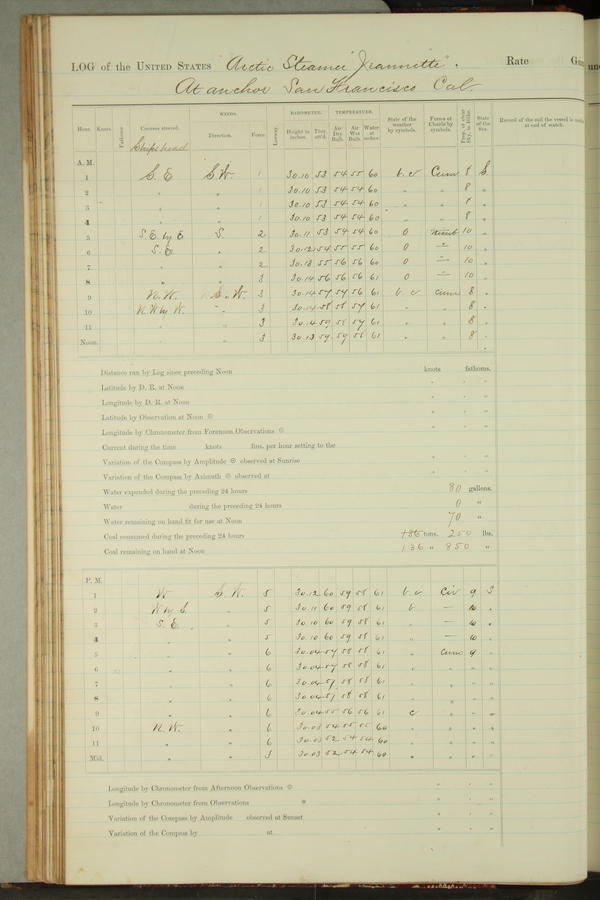 LOG of the UNITED STATES "Arctic Steamer Jeannette". Rate
At anchor San Francisco Cal
Hour. Knots. Fathoms Courses steered. WINDS. Direction. Force. Leeway. BAROMETER. Height in inches. Ther. att'd. TEMPERATURE. Air Dry Bulb. Air Wet Bulb. Water at State of the weather by symbols. Forms of Clouds by symbols. State of the Sea. Record of the sail the vessel is at end of watch.
Ships head
A. M.
1 S. E S.W. 1 30.10 53 54 55 60 b. c Cum 8 S.
2 " " 1 30.10 53 54 54 60 " " 8 "
3 " " 1 30.10 53 54 54 60 " " 8 "
4 " " 1 30.10 53 54 54 60 " " 8 "
5 S.E. by E S. 2 30.11 53 54 54 60 O 10 "
6 S.E. " 2 30.12 54 55 55 60 O " 10 "
7 " " 2 30.13 55 56 56 60 O " 10 "
8 " " 3 30.14 56 56 56 61 O " 10 "
9 N.W. S.W. 3 30.14 57 57 56 61 b. c cum 8 "
10 N.W by W. " 3 30.14 58 58 57 61 " " 8 "
11 " " 3 30.14 59 58 57 61 " " 8 "
Noon. " " 3 30.13 59 59 58 61 " " 8 "
Distance ran by Log since preceding Noon knots fathoms.
Latitude by D. R. at Noon ° ' "
Longitude by D. R. at Noon ° ' "
Latitude by Observation at Noon ☉ ° ' "
Longitude by Chronometer from Forenoon Observations ☉ ° ' "
Current during the time knots fms. per hour setting to the
Variation of the Compass by Amplitude ☉ observed at Sunrise ° ' "
Variation of the Compass by Azimuth ☉ observed at ° ' "
Water expended during the preceding 24 hours 80 gallons.
Water during the preceding 24 hours 0 "
Water remaining on hand fit for use at Noon 70 "
Coal consumed during the preceding 24 hours tons. 250 lbs.
Coal remaining on hand at Noon 136 " 850 "
P. M.
1 W S.W. 5 30.12 60 59 58 61 b. c. Cir 9 S
2 W by S. " 5 30.11 60 59 58 61 b. — 10 "
3 S.E. " 5 30.10 60 59 58 61 " — 10 "
4 " " 5 30.10 60 59 58 61 " — 10 "
5 " " 6 30.04 57 58 58 61 " Cum 9 "
6 " " 6 30.04 57 58 58 61 " " " "
7 " " 6 30.04 57 58 58 61 " " " "
8 " " 6 30.04 57 58 58 61 " " " "
9 " " 6 30.04 55 56 56 61 c " " "
10 N.W. " 6 30.03 54 55 55 60 " " " "
11 " " 6 30.03 52 54 54 60 " " " "
Mid. " " 3 30.03 52 54 54 60 " " " "
Longitude by Chronometer from Afternoon Observations ☉ ° ' "
Longitude by Chronometer from Observations * ° ' "
Variation of the Compass by Amplitude observed at Sunset ° ' "
Variation of the Compass by at ° ' "